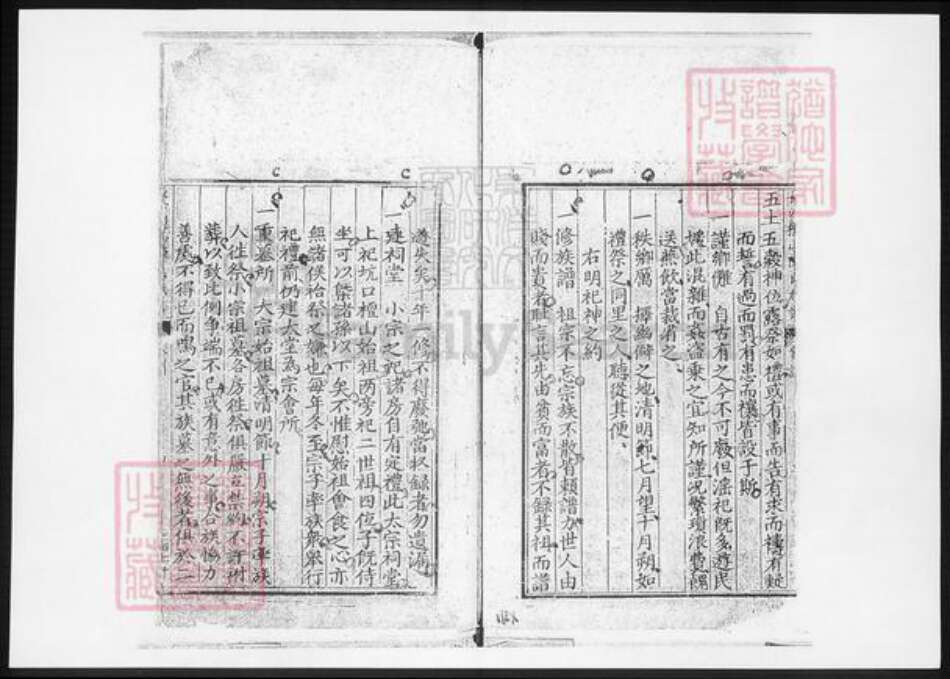 五土五穀神位露祭如禮或有事而告有求而禱有疑
而誓有過而罰有患而禳皆設于斯
一謹鄉儺　自古有之今不可廢但淫祀旣多遊民
此混雜而姦盜乗之宜知所謹况繁瑣浪費
送燕飲當裁省之
一秩鄉厲　擇幽僻之地清明節七月望十月朔如
禮祭之同里之人聽從其便
右明祀神之約
一修族譜　祖宗不忘宗族不散皆頼譜力世人由
賤而貴者耻言其先由貧而富者不録其祖而譜
遂失矣年不得廢弛當収録者勿遺漏
一建祠堂　小宗之祀諸房自有定禮此太宗祠堂
上祀坑口檀山始祖两旁祀二世祖四位子旣侍
坐可以槩諸孫以下矣不惟慰始祖會食之心亦
無諸侯祫祭之嫌也每年冬至宗子率族衆舉行
祀禮前仍建大堂為宗會所
一重墓祈　大宗始祖墓清明節十月朔宗子率族
人徃祭小宗祖墓各房徃祭俱嚴立禁約不許附
葬以致此例爭端不已或有意外之事合族協力
善處不得已而鳴之官其族墓之無後者俱於二
猶他家譜學會收藏